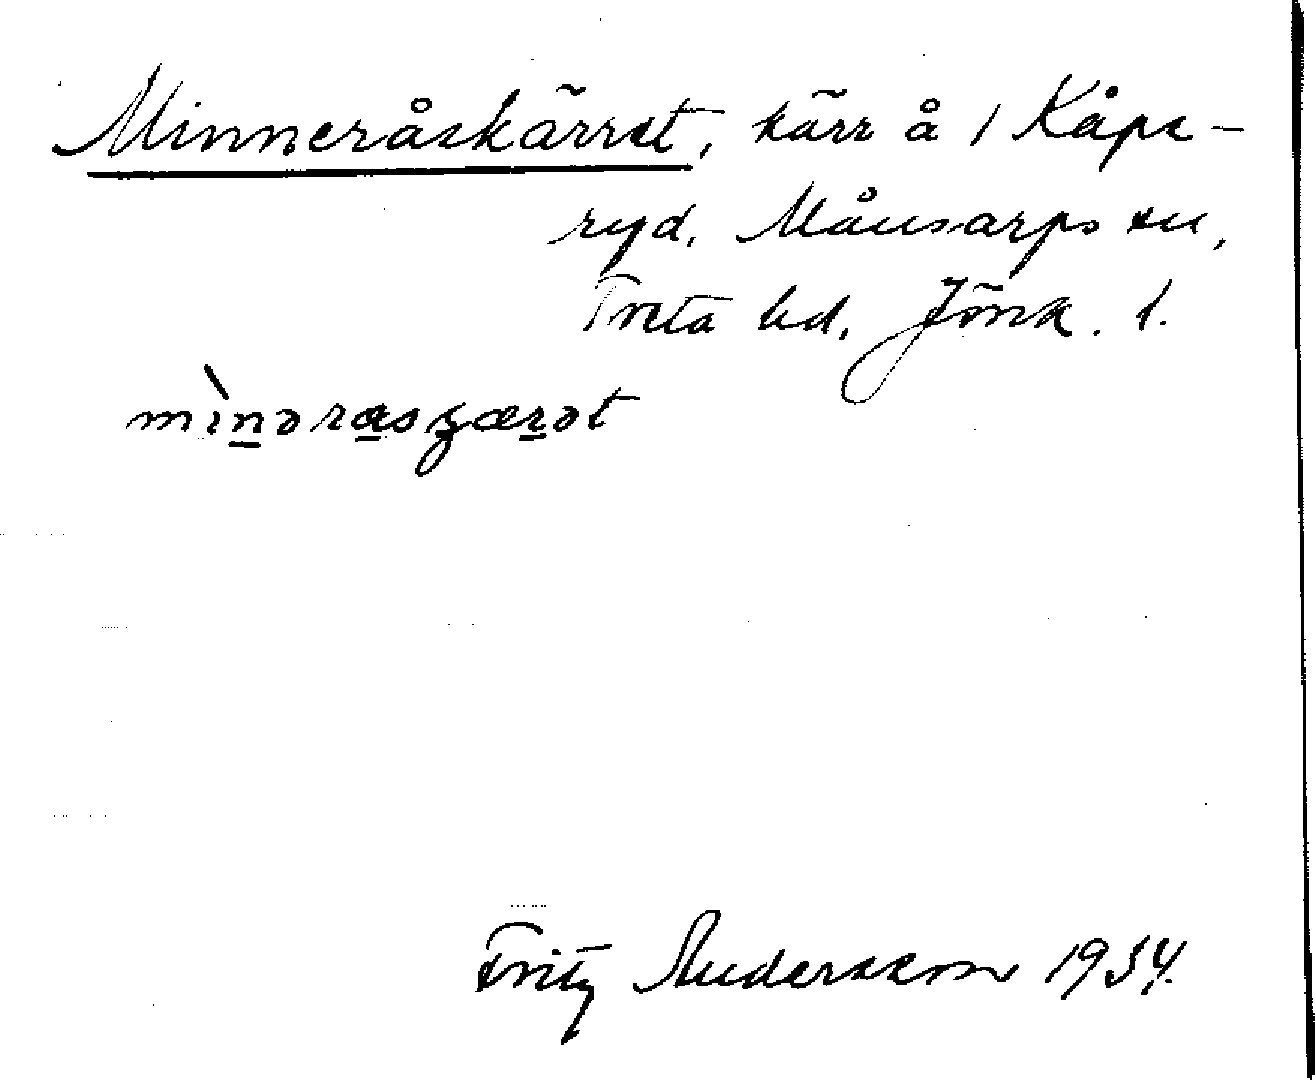 Minneråskärret, kärr å 1 Kåpe-
ryd, Månsarps sn,
Tveta hd, Jönk. l.
mìnərasʒærət
Fritz Andersson 1934.